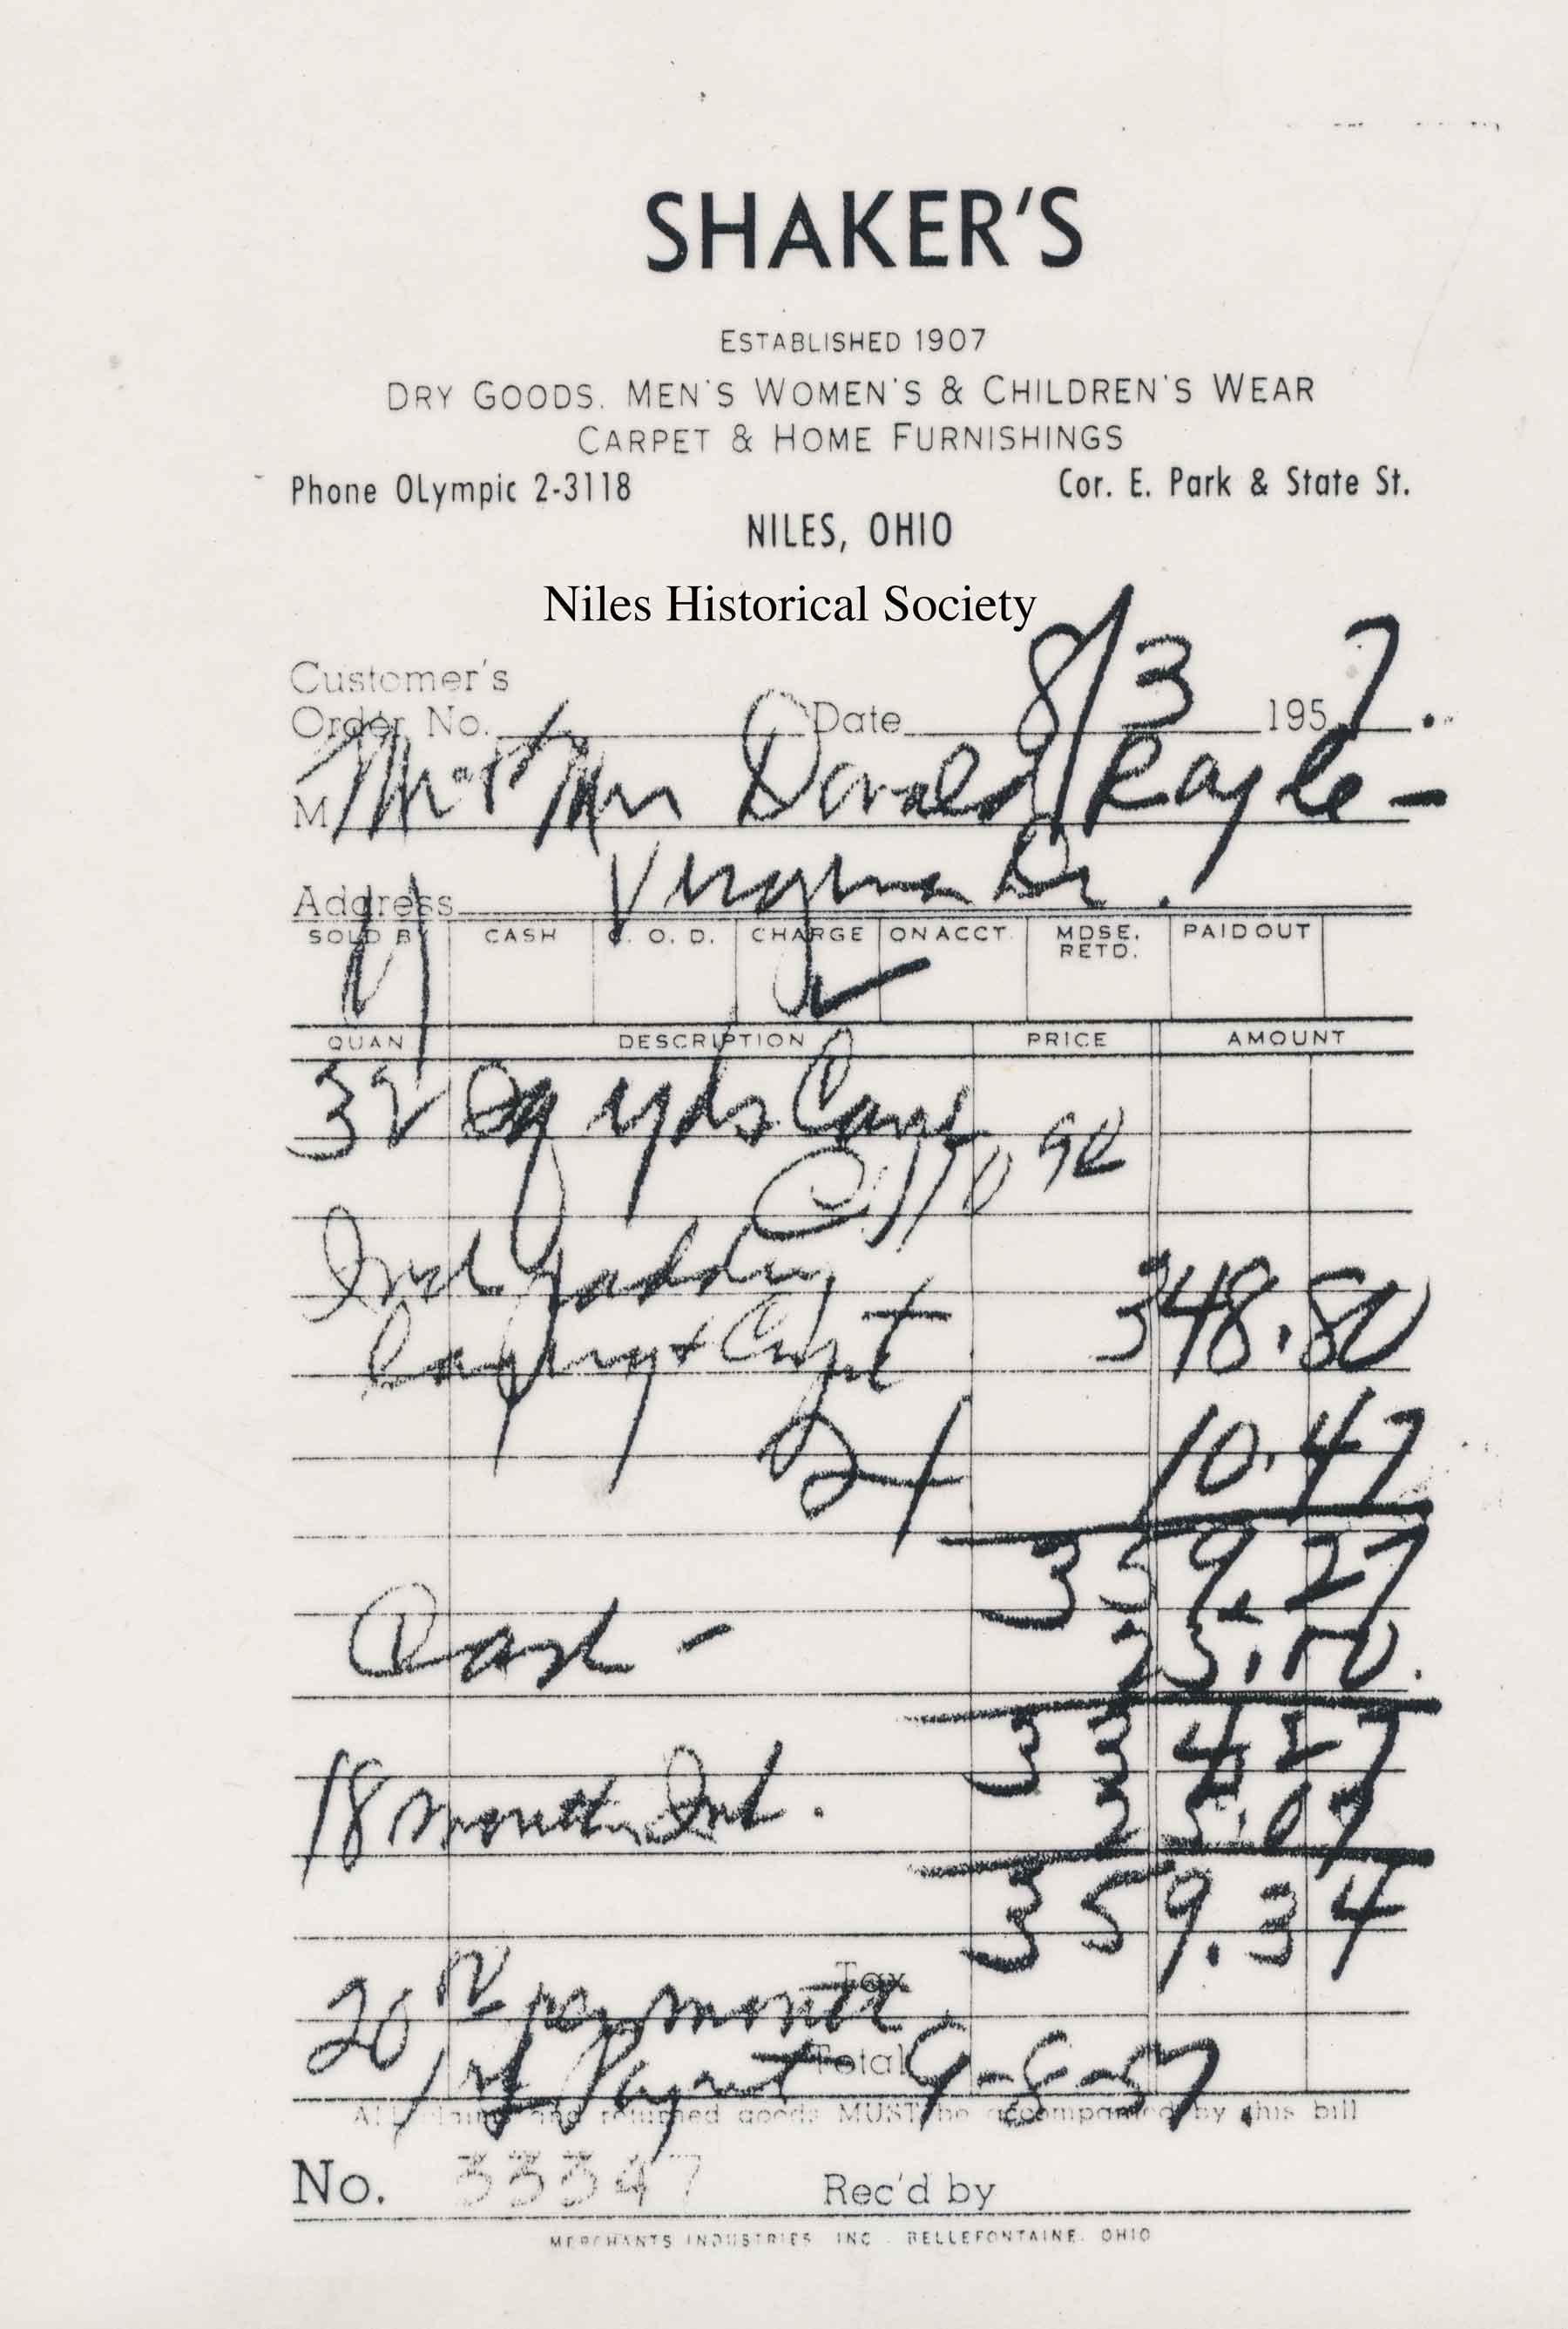 SHAKER'S
ESTABLISHED 1907
DRY GOODS. MEN'S WOMEN'S & CHILDREN'S WEAR
CARPET & HOME FURNISHINGS
Phone OLympic 2-3118 Cor. E. Park & State St.
NILES, OHIO
Niles Historical Society
Customer's
Order No. Date 8/3 1957.
M Mr & Mrs Donald Kagle -
Address Virginia Dr.
SOLD BY CASH C. O. D. CHARGE ON ACCT. MDSE. RETD. PAID OUT
QUAN DESCRIPTION PRICE AMOUNT
32 Sq yds Carpt
@
Incl Padding
Laying & Carpt 348.80
10.47
359.27
Cash - 25.00
334.27
18 months Int. 25.07
359.34
Tax
20 per month
Total
1st Paymt 9-8-57
All claims and returned goods MUST be accompanied by this bill
No. 33347 Rec'd by
MERCHANTS INDUSTRIES INC. BELLEFONTAINE, OHIO